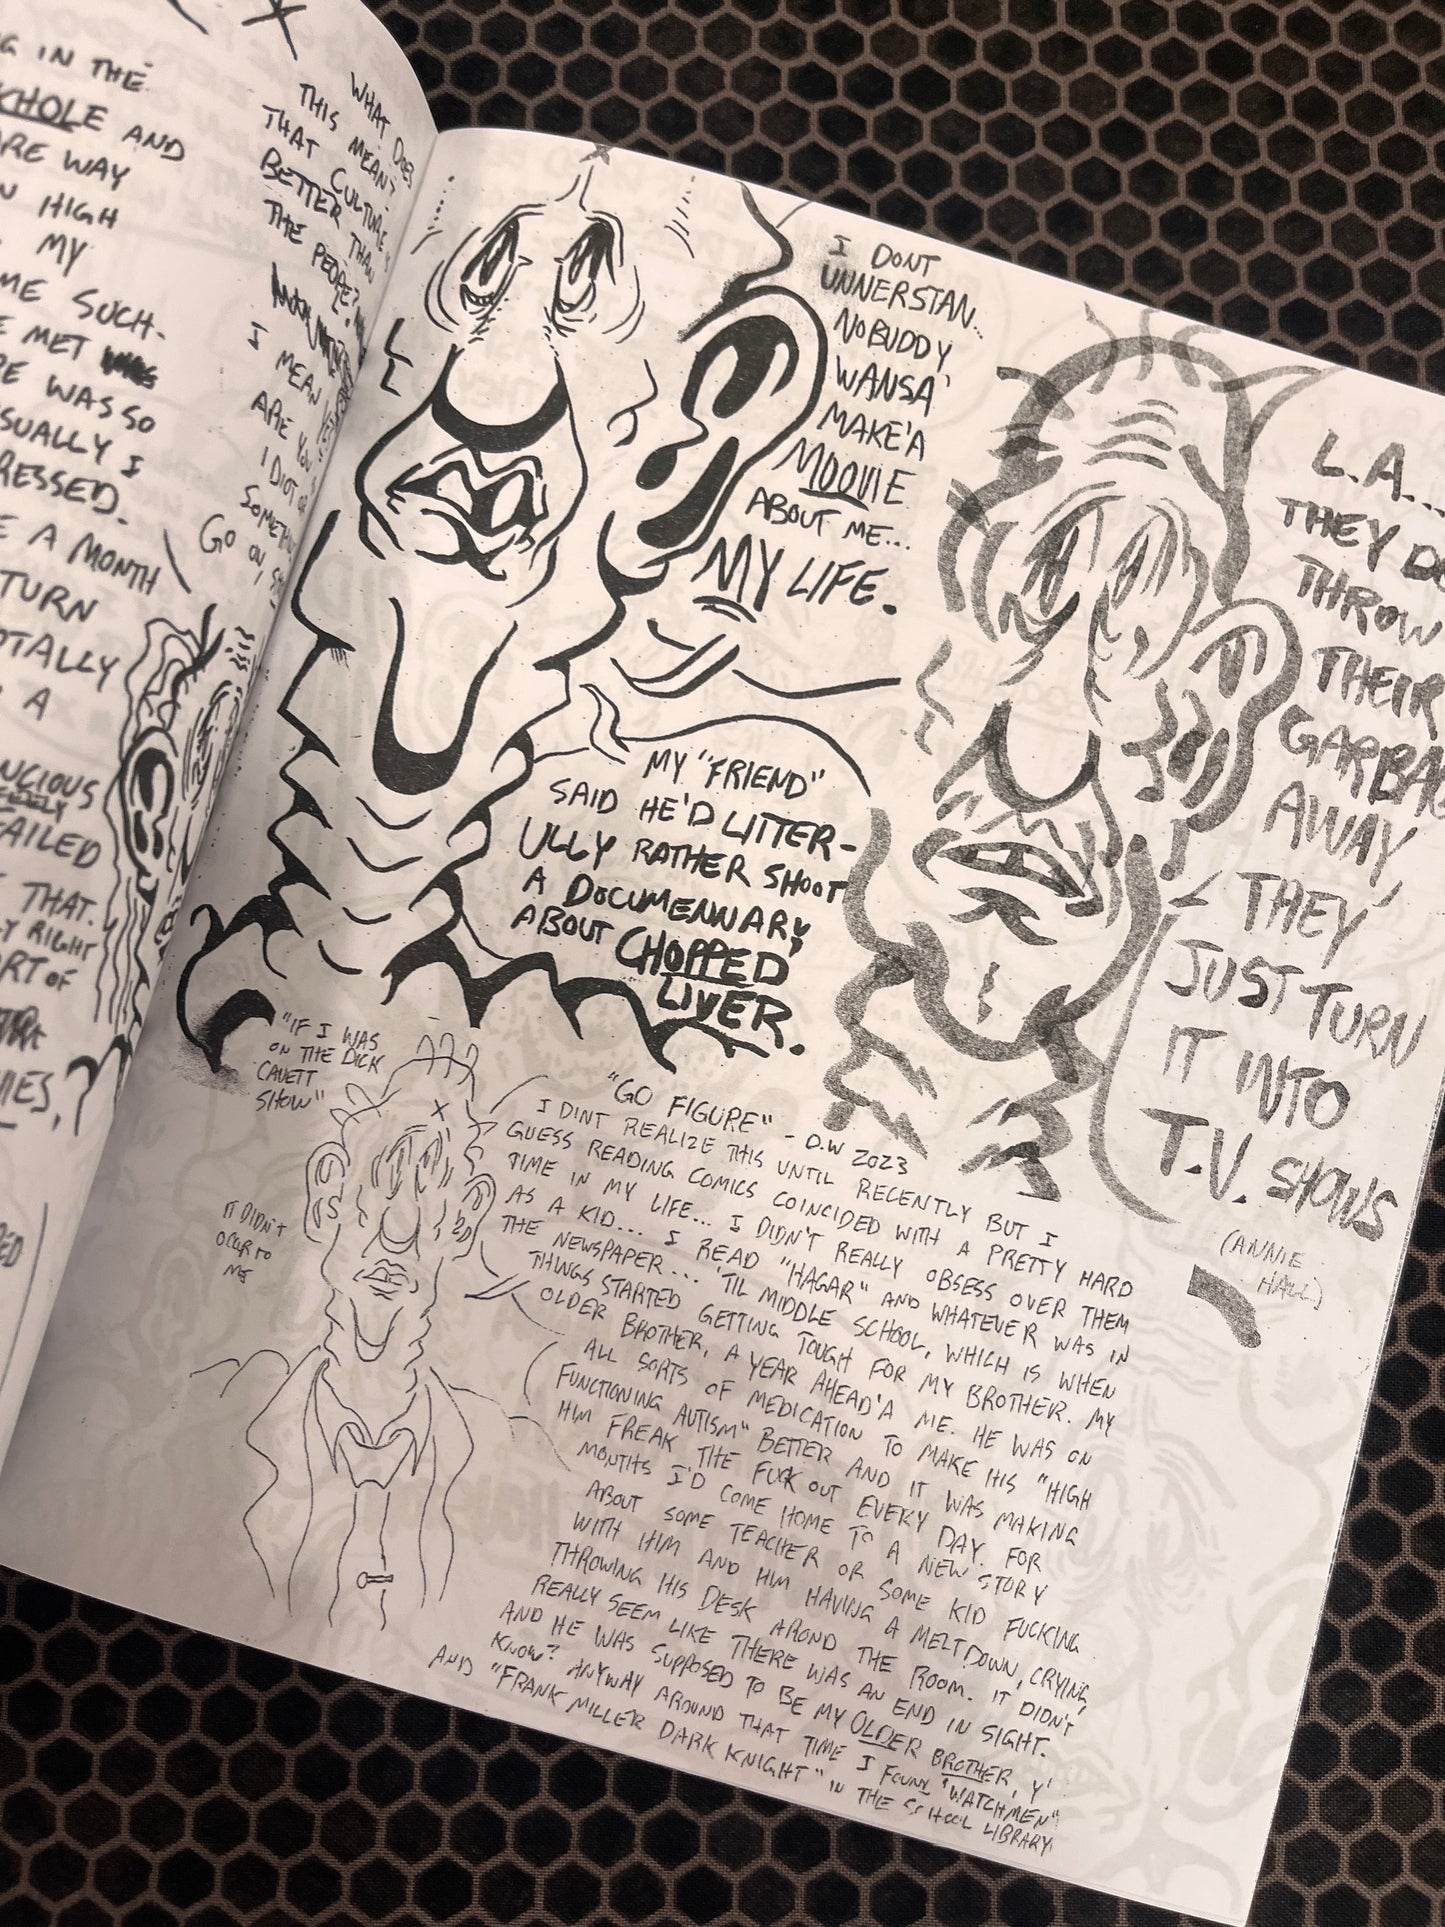 G IN THE
KHOLE AND
ARE WAY
N HIGH
MY
ME SUCH-
E MET
RE WAS SO
SUALLY I
RESSED.
E A MONTH
TURN
OTALLY
A
NCIOUS
FAILED
THAT.
Y RIGHT
ORT OF
IES,?
WHAT DOES
THIS MEAN?
THAT CULTURE IS
BETTER THAN
THE PEOPLE?
I MEAN
ARE YOU
IDIOT OR
SOMETHI
GO ON,
I DONT
UNNERSTAN...
NOBUDDY
WANSA'
MAKE'A
MOOVIE
ABOUT ME...
MY LIFE.
MY "FRIEND"
SAID HE'D LITTER-
ULLY RATHER SHOOT
A DOCUMENNARY
ABOUT CHOPPED
LIVER.
L.A....
THEY DO
THROW
THEIR
GARBAG
AWAY,
THEY
JUST TURN
IT INTO
T.V. SHOWS
(ANNIE
HALL)
"IF I WAS
ON THE DICK
CAVETT
SHOW"
IT DIDN'T
OCUR TO
ME
"GO FIGURE" - D.W 2023
I DINT REALIZE THIS UNTIL RECENTLY BUT I
GUESS READING COMICS COINCIDED WITH A PRETTY HARD
TIME IN MY LIFE... I DIDN'T REALLY OBSESS OVER THEM
AS A KID... I READ "HAGAR" AND WHATEVER WAS IN
THE NEWSPAPER... 'TIL MIDDLE SCHOOL, WHICH IS WHEN
THINGS STARTED GETTING TOUGH FOR MY BROTHER. MY
OLDER BROTHER, A YEAR AHEAD'A ME. HE WAS ON
ALL SORTS OF MEDICATION TO MAKE HIS "HIGH
FUNCTIONING AUTISM" BETTER AND IT WAS MAKING
HIM FREAK THE FUCK OUT EVERY DAY. FOR
MONTHS I'D COME HOME TO A NEW STORY
ABOUT SOME TEACHER OR SOME KID FUCKING
WITH HIM AND HIM HAVING A MELTDOWN, CRYING,
THROWING HIS DESK AROND THE ROOM. IT DIDN'T
REALLY SEEM LIKE THERE WAS AN END IN SIGHT.
AND HE WAS SUPPOSED TO BE MY OLDER BROTHER, Y'
KNOW? ANYWAY AROUND THAT TIME I FOUND "WATCHMEN"
AND "FRANK MILLER DARK KNIGHT" IN THE SCHOOL LIBRARY.